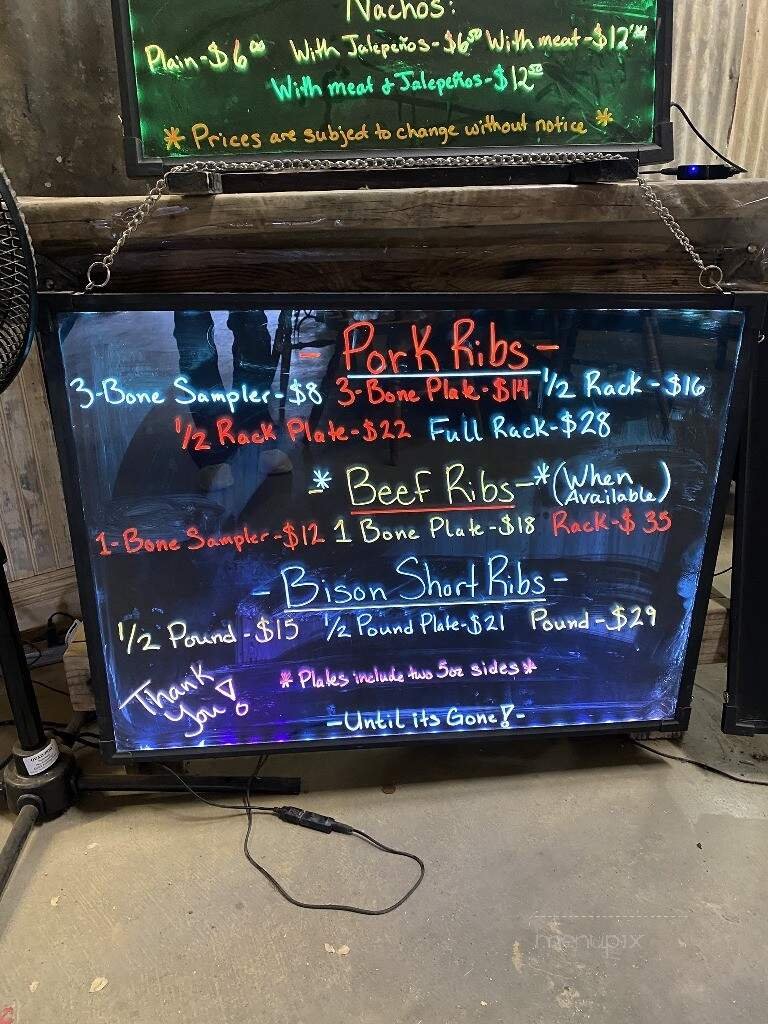 Nachos:
Plain-$6.00 With Jalepeños-$6.50 With meat-$12.00
With meat & Jalepeños-$12.50
* Prices are subject to change without notice *
- Pork Ribs -
3-Bone Sampler-$8 3-Bone Plate-$14 1/2 Rack-$16
1/2 Rack Plate-$22 Full Rack-$28
-* Beef Ribs -* (When Available)
1-Bone Sampler-$12 1 Bone Plate-$18 Rack-$35
- Bison Short Ribs -
1/2 Pound-$15 1/2 Pound Plate-$21 Pound-$29
* Plates include two 5oz sides *
Thank You!
-Until its Gone!-
menupix